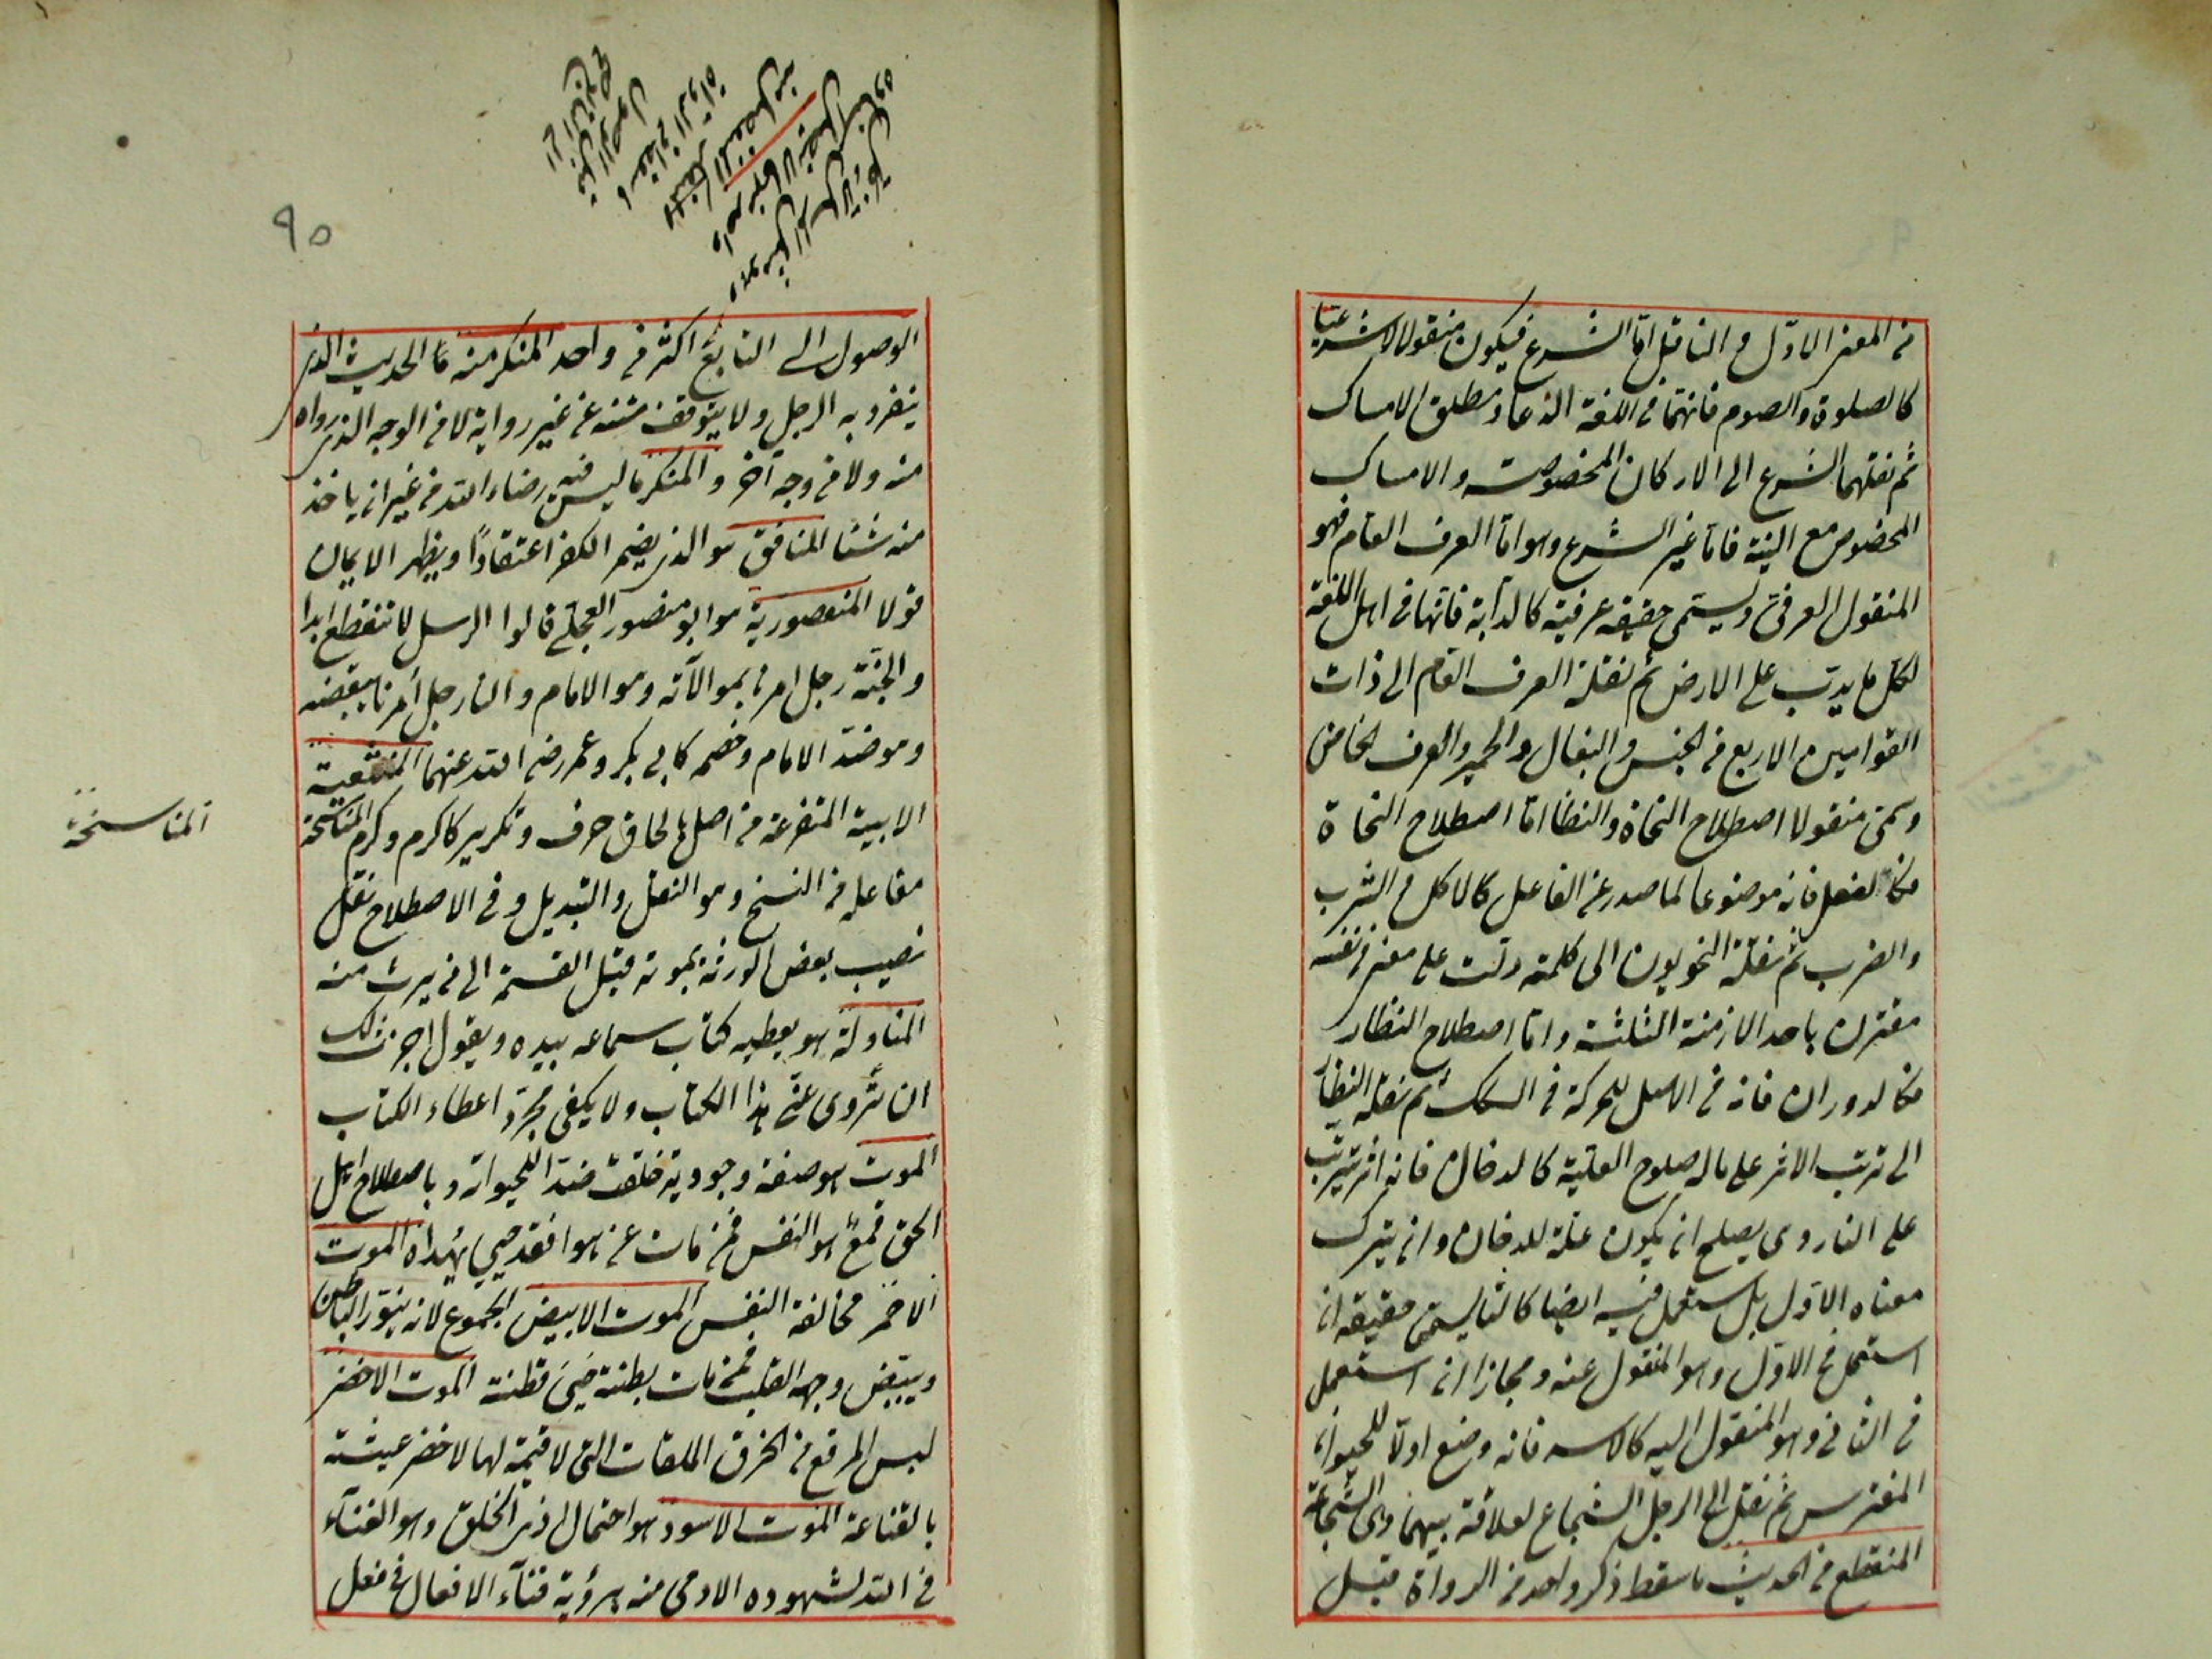 من المعنى الاول والناقل اما الشرع فيكون منقولا شرعيا
كالصلوة والصوم فانهما في اللغة الدعاء ومطلق الامساك
ثم نقلهما الشرع الى الاركان المخصوصة والامساك
المخصوص مع النية فاما غير الشرع وهو اما العرف العام فهو
المنقول العرفي ويسمى حقيقة عرفية كالدابة فانها في اهل اللغة
لكل ما يدب على الارض ثم نقله العرف العام الى ذات
القوايم الاربع من والبغال والحمير والعرف الخاص
وسمى منقولا اصطلاح النحاة والنظار اما اصطلاح النحاة
فكالفعل فانه موضوعا لما صدر عن الفاعل كالاكل والشرب
والضرب ثم نقله النحويون الى كلمة دلت على معنى في نفسه
مقترن باحد الازمنة الثلثة واما اصطلاح النظار
فكالدوران فانه في الاصل للحركة في السكك ثم نقله النظار
الى ترتب الاثر على ماله صلوح العلية كالدخان فانه اثر يترتب
على النار وهى يصلح ان يكون علة للدخان وان يترك
معناه الاول بل يستعمل فيه ايضا يسمى حقيقة ان
استعمل في الاول وهو المنقول عنه ومجازا ان استعمل
في الثاني وهو المنقول اليه كالاسد فانه وضع اولا للحيوان
المفترس ثم نقل الى الرجل الشجاع لعلاقة بينهما وهى الشجاعة
المنقطع من الحديث ما سقط ذكر واحد من الرواة قبل
٩٥
الوصول الى التابع اكثر من واحد المنكر منه ما الحديث الذى
ينفرد به الرجل ولا يتوقف متنه عن غير رواية لا من الوجه الذى رواه
منه ولا من وجه آخر والمنكر ما ليس فيه رضاء الله من غير ان ياخذ
منه شئا المنافق هو الذى يضمر الكفر اعتقادا ويظهر الايمان
قولا المنصورية هو ابو منصور العجلى قالوا الرسل لا تنقطع ابدا
والجنة رجل امرنا بموالاته وهو الامام والنار رجل امرنا ببغضه
وهو ضد الامام وخصمه كابى بكر وعمر رضى الله عنهما المنشعبة
الابنية المتفرعة من اصل بالحاق حرف وتكرير كاكرم وكرم المناسخة
مفاعلة من النسخ وهو النقل والتبديل وفي الاصطلاح نقل
نصيب بعض الورثة بموته قبل القسمة الى من يرث منه
المناولة هو يعطيه كتاب سماعه بيده ويقول اجزت لك
ان تروى عنى هذا الكتاب ولا يكفى مجرد اعطاء الكتاب
الموت هو صفة وجودية خلقت ضدا للحيوة وباصطلاح اهل
الحق قمع هو النفس فمن مات عن هواه فقد حيى بهداه الموت
الاحمر مخالفة النفس الموت الابيض الجوع لانه ينور الباطن
ويبيض وجه القلب فمن مات بطنته حيى فطنته الموت الاخضر
لبس المرقع من الخرق الملقات التى لا قيمة لها لاخضر عيشه
بالقناعة الموت الاسود هو احتمال اذى الخلق وهو الفناء
في الله لشهوده الاذى منه برؤية فناء الافعال في فعل
المناسخة